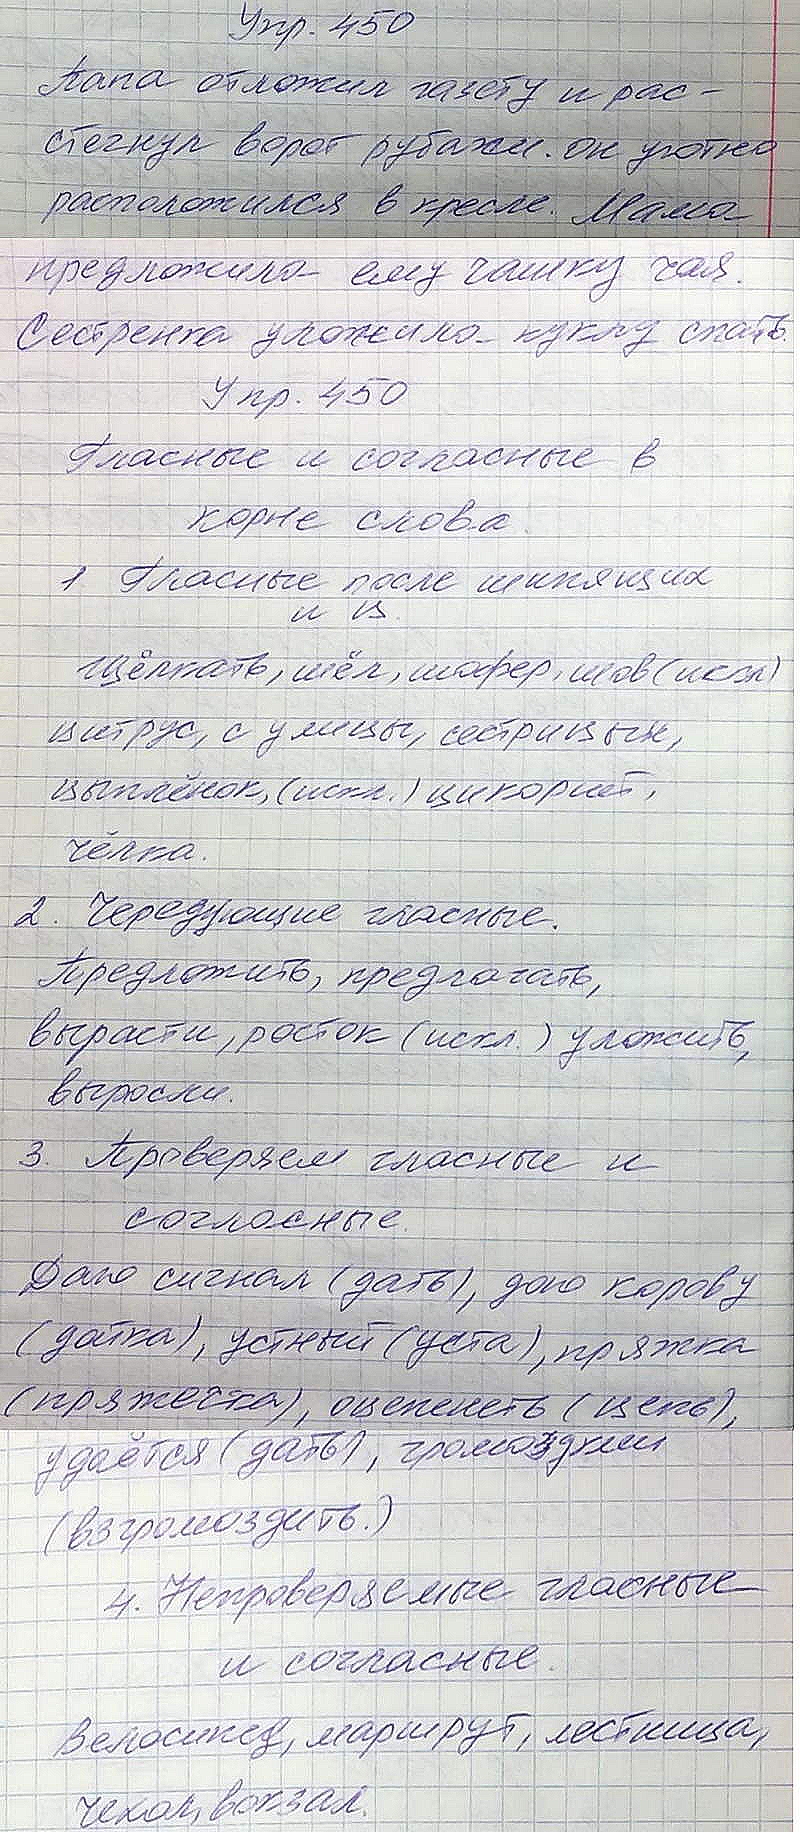 Упр. 450
Папа отложил газету и рас-
стегнул ворот рубажи. он уютно
расположился в кресле. Мама
предложила ему чашку чая.
Сестренка уложила куклу спать.
Упр. 450
Гласные и согласные в
корне слова.
1 Гласные после шипящих
и ц.
Щёлкать, шёл, шофер, шов (искл)
цитрус, с улицы, сестрицын,
цыплёнок, (искл.) цикорий,
чёлка.
2. Чередующие гласные.
Предложить, предлагать,
вырасти, росток (искл.) уложить,
выросли.
3. Проверяем гласные и
согласные.
Даю сигнал (дать), дою корову
(дойка), устный (уста), пряжка
(пряжечка), оцепенеть (цепь),
удаётся (дать), громоздкий
(взгромоздить.)
4. Непроверяемые гласные
и согласные.
Велосипед, маршрут, лестница,
чехол, вокзал.